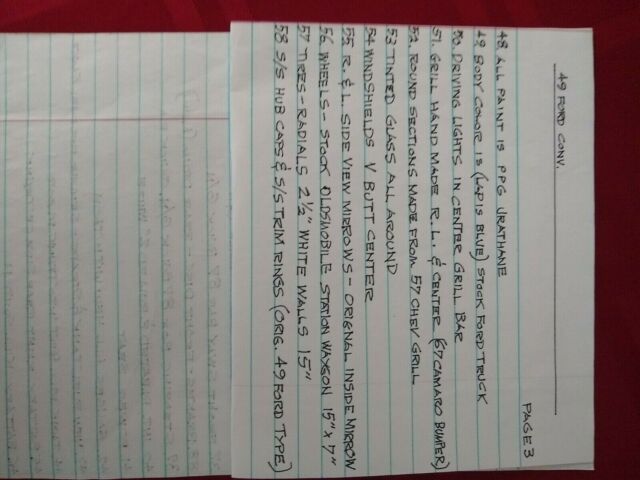 PAGE 3
49 FORD CONV.
48 ALL PAINT IS PPG URATHANE
49 BODY COLOR IS (LAPIS BLUE) STOCK FORD TRUCK
50 DRIVING LIGHTS IN CENTER GRILL BAR
51. GRILL HAND MADE R. L. & CENTER (67 CAMARO BUMPER)
52 ROUND SECTIONS MADE FROM 57 CHEV GRILL
53 TINTED GLASS ALL AROUND
54 WINDSHIELDS V BUTT CENTER
55 R. & L. SIDE VIEW MIRROWS - ORIGNAL INSIDE MIRROW
56 WHEELS - STOCK OLDSMOBILE STATION WAXGON 15" X 7"
57 TIRES - RADIALS 2½" WHITE WALLS 15"
58 S/S HUB CAPS & S/S TRIM RINGS (ORIG. 49 FORD TYPE)